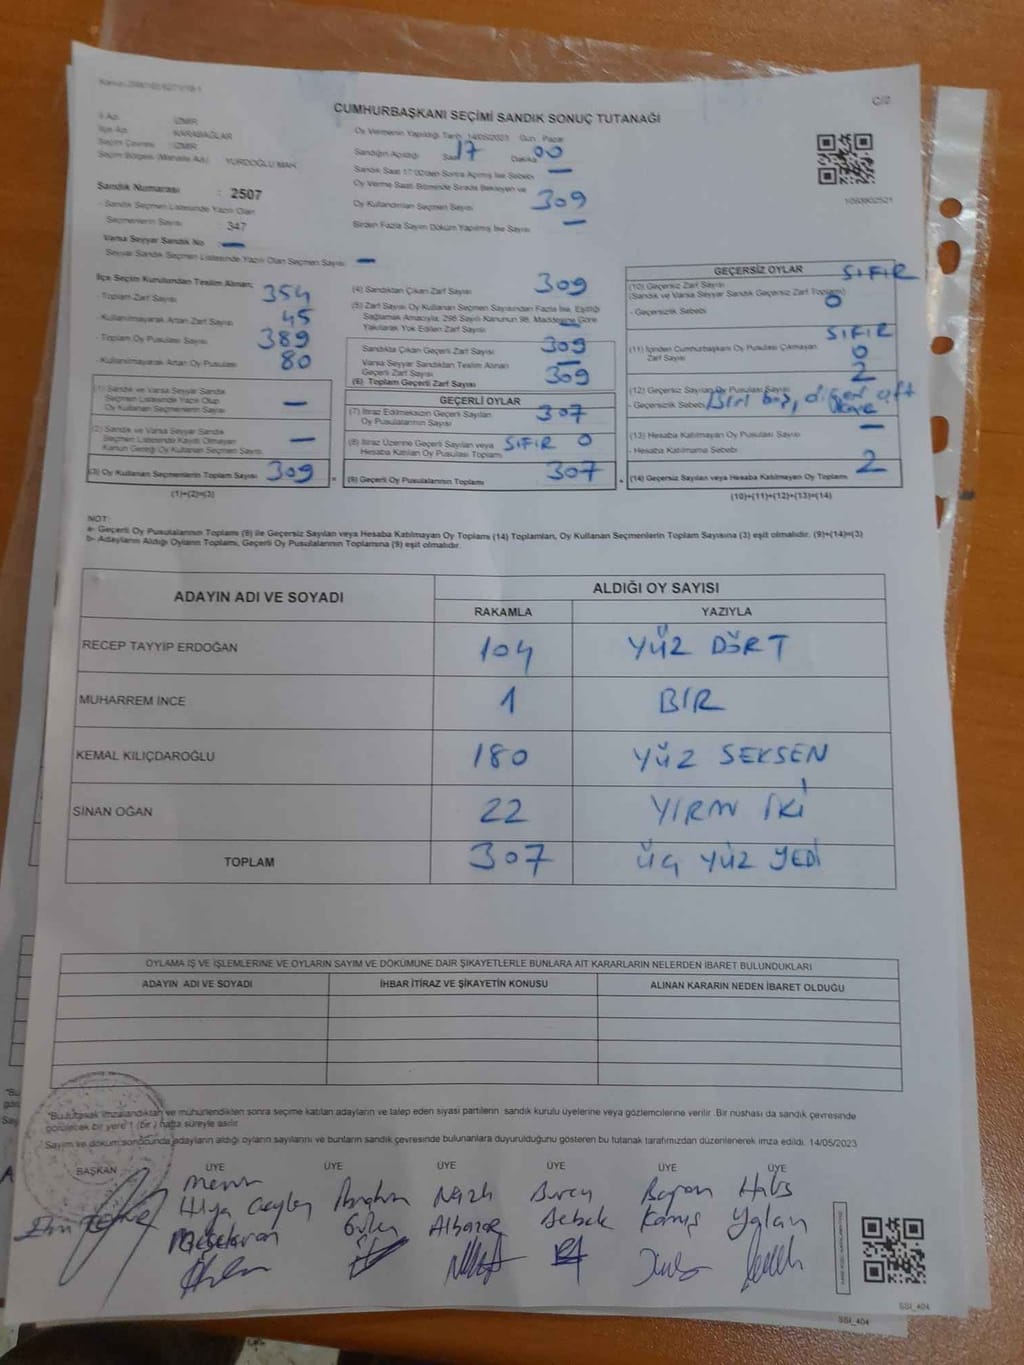 C/2
CUMHURBAŞKANI SEÇİMİ SANDIK SONUÇ TUTANAĞI
İl Adı : İZMİR
İlçe Adı : KARABAĞLAR
Seçim Çevresi : İZMİR
Seçim Bölgesi (Mahalle Adı) : YURDOĞLU MAH.
Sandık Numarası : 2507
- Sandık Seçmen Listesinde Yazılı Olan
Seçmenlerin Sayısı : 347
Varsa Seyyar Sandık No : —
Seyyar Sandık Seçmen Listesinde Yazılı Olan Seçmen Sayısı : —
Oy Vermenin Yapıldığı Tarih 14/05/2023 Gün : Pazar
Sandığın Açıldığı Saat 17 Dakika 00
Sandık Saat 17:00'den Sonra Açılmış İse Sebebi —
Oy Verme Saati Bitiminde Sırada Bekleyen ve
Oy Kullandırılan Seçmen Sayısı 309
Birden Fazla Sayım Döküm Yapılmış İse Sayısı —
1093902521
İlçe Seçim Kurulundan Teslim Alınan;
- Toplam Zarf Sayısı 354
- Kullanılmayarak Artan Zarf Sayısı 45
- Toplam Oy Pusulası Sayısı 389
- Kullanılmayarak Artan Oy Pusulası 80
(1) Sandık ve Varsa Seyyar Sandık
Seçmen Listesinde Yazılı Olup
Oy Kullanan Seçmenlerin Sayısı —
(2) Sandık ve Varsa Seyyar Sandık
Seçmen Listesinde Kayıtlı Olmayan
Kanun Gereği Oy Kullanan Seçmen Sayısı —
(3) Oy Kullanan Seçmenlerin Toplam Sayısı 309
(1)+(2)=(3)
(4) Sandıktan Çıkan Zarf Sayısı 309
(5) Zarf Sayısı Oy Kullanan Seçmen Sayısından Fazla İse, Eşitliği
Sağlamak Amacıyla, 298 Sayılı Kanunun 98. Maddesine Göre
Yakılarak Yok Edilen Zarf Sayısı —
Sandıkta Çıkan Geçerli Zarf Sayısı 309
Varsa Seyyar Sandıktan Teslim Alınan
Geçerli Zarf Sayısı —
(6) Toplam Geçerli Zarf Sayısı 309
GEÇERLİ OYLAR
(7) İtiraz Edilmeksizin Geçerli Sayılan
Oy Pusulalarının Sayısı 307
(8) İtiraz Üzerine Geçerli Sayılan veya
Hesaba Katılan Oy Pusulası Toplamı SIFIR 0
(9) Geçerli Oy Pusulalarının Toplamı 307
GEÇERSİZ OYLAR SIFIR
(10) Geçersiz Zarf Sayısı
(Sandık ve Varsa Seyyar Sandık Geçersiz Zarf Toplamı) 0
- Geçersizlik Sebebi
SIFIR
(11) İçinden Cumhurbaşkanı Oy Pusulası Çıkmayan
Zarf Sayısı 0
(12) Geçersiz Sayılan Oy Pusulası Sayısı 2
- Geçersizlik Sebebi Biri boş, diğeri
(13) Hesaba Katılmayan Oy Pusulası Sayısı —
- Hesaba Katılmama Sebebi
(14) Geçersiz Sayılan veya Hesaba Katılmayan Oy Toplamı 2
(10)+(11)+(12)+(13)=(14)
NOT:
a- Geçerli Oy Pusulalarının Toplamı (9) ile Geçersiz Sayılan veya Hesaba Katılmayan Oy Toplamı (14) Toplamları, Oy Kullanan Seçmenlerin Toplam Sayısına (3) eşit olmalıdır. (9)+(14)=(3)
b- Adayların Aldığı Oyların Toplamı, Geçerli Oy Pusulalarının Toplamına (9) eşit olmalıdır.
ADAYIN ADI VE SOYADI ALDIĞI OY SAYISI
RAKAMLA YAZIYLA
RECEP TAYYİP ERDOĞAN 104 YÜZ DÖRT
MUHARREM İNCE 1 BİR
KEMAL KILIÇDAROĞLU 180 YÜZ SEKSEN
SİNAN OĞAN 22 YİRMİ İKİ
TOPLAM 307 ÜÇ YÜZ YEDİ
OYLAMA İŞ VE İŞLEMLERİNE VE OYLARIN SAYIM VE DÖKÜMÜNE DAİR ŞİKAYETLERLE BUNLARA AİT KARARLARIN NELERDEN İBARET BULUNDUKLARI
ADAYIN ADI VE SOYADI İHBAR İTİRAZ VE ŞİKAYETİN KONUSU ALINAN KARARIN NEDEN İBARET OLDUĞU
*Bu tutanak imzalandıktan ve mühürlendikten sonra seçime katılan adayların ve talep eden siyasi partilerin sandık kurulu üyelerine veya gözlemcilerine verilir. Bir nüshası da sandık çevresinde
görülecek bir yere 1 (bir) hafta süreyle asılır.
Sayım ve döküm sonucunda adayların aldığı oyların sayılarını ve bunların sandık çevresinde bulunanlara duyurulduğunu gösteren bu tutanak tarafımızdan düzenlenerek imza edildi. 14/05/2023
BAŞKAN ÜYE ÜYE ÜYE ÜYE ÜYE ÜYE
İbrahim Nazlı Burcu Bayram Halis
Albazar Bebek Kamış Yalan
SSI_404
SSI_404